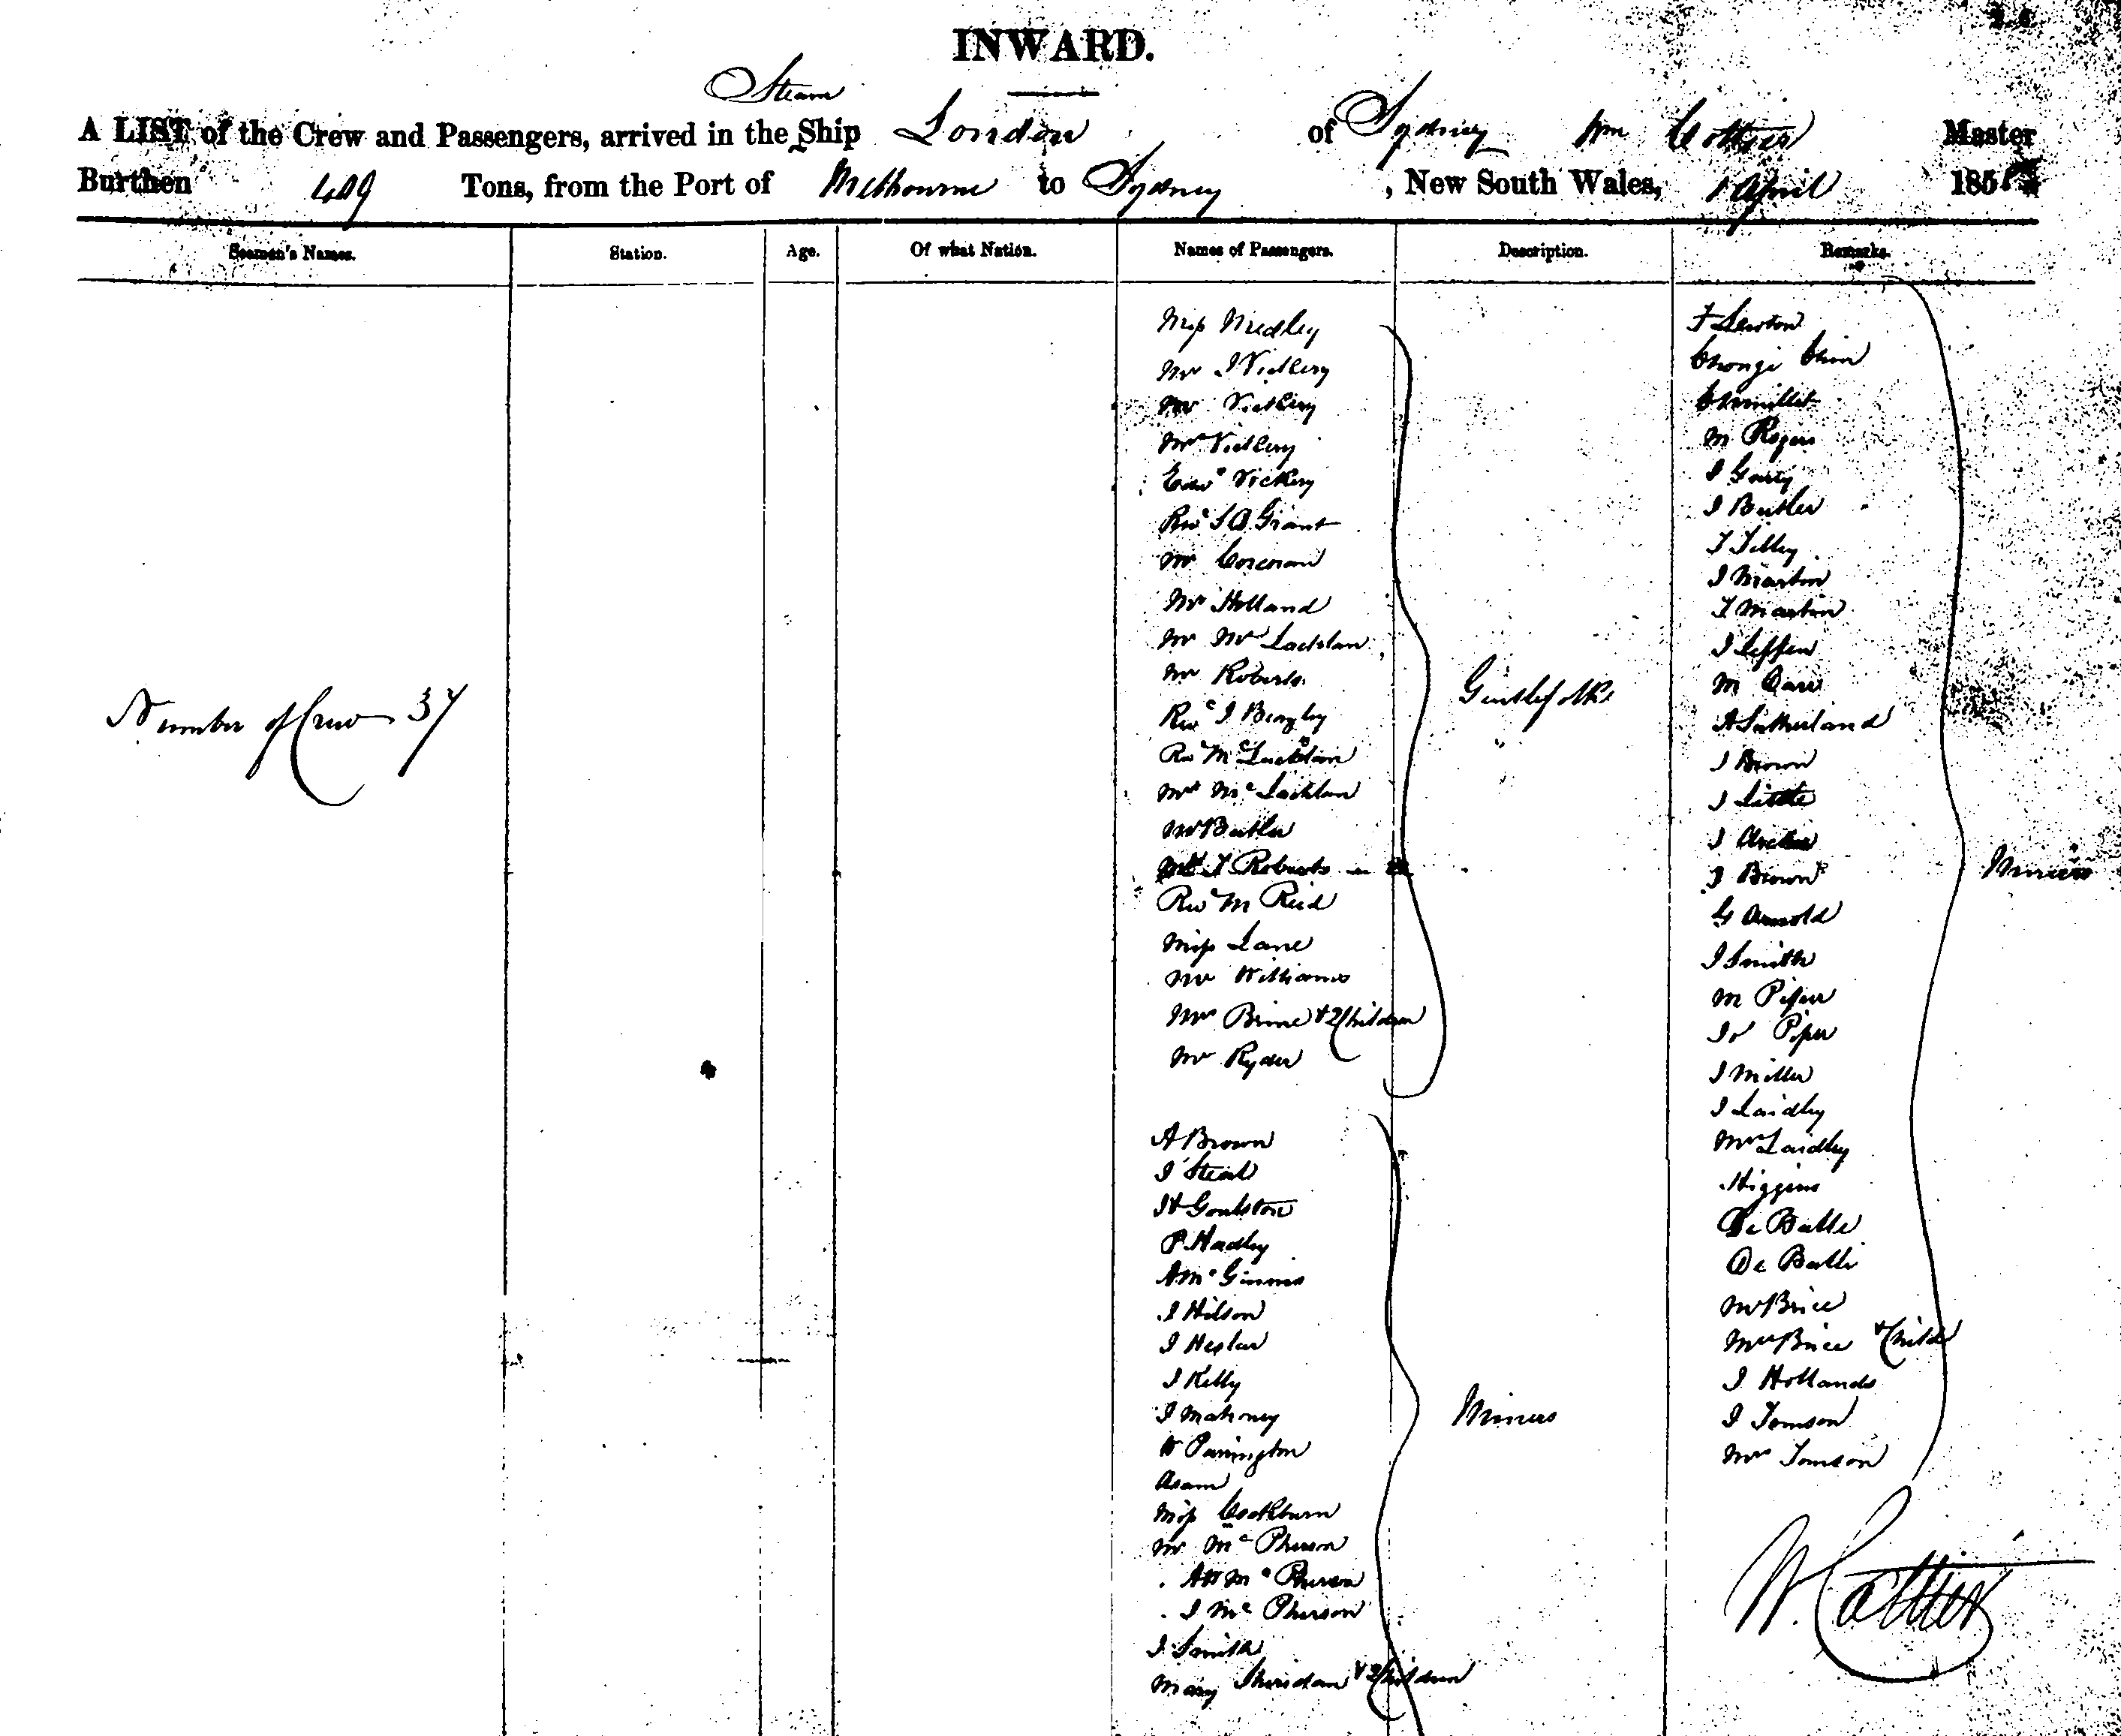 INWARD.
Steam
A LIST of the Crew and Passengers, arrived in the Ship London of Sydney Wm Cottier Master
Burthen 409 Tons, from the Port of Melbourne to Sydney, New South Wales, 1 April 185
Seamen's Names. Station. Age. Of what Nation. Names of Passengers. Description. Remarks.
Number of Crew 37
Miss Medley
Mr J Vickery
Mr Vickery
Mrs Vickery
Edwd Vickery
Revd Grant
Mr Corcoran
Mr Holland
Mr McLachlan
Mr Roberts
Revd J Beazley
Rev McLachlan
Mrs McLachlan
Mr Butler
T Roberts
Rev M Reid
Miss Lane
Mr Williams
Mrs Brine & 2 Children
Mr Ryder
Gentlefolks
A Brown
J Steal
H Goulston
P. Hadley
A McGinnis
J Hilson
J Heslar
J Kelly
J Mahoney
W Parrington
Asam
Miss Cockburn
Mr McPherson
AW McPherson
J McPherson
J Smith
Mary Sheridan & 2 Children
Miners
F Lewton
M Rogers
J Garry
J Butler
T Tilley
J Martin
T Martin
J Leffen
M Carr
A Sutherland
J Brown
J Little
J Archer
J Brown
G Arnold
J Smith
M Piper
Jo Piper
J Miller
J Laidley
Mrs Laidley
Higgins
De Balle
De Balli
Mr Brice
Mrs Brice & Child
J Hollands
J Tomson
Mrs Tomson
Miners
W. Cottier